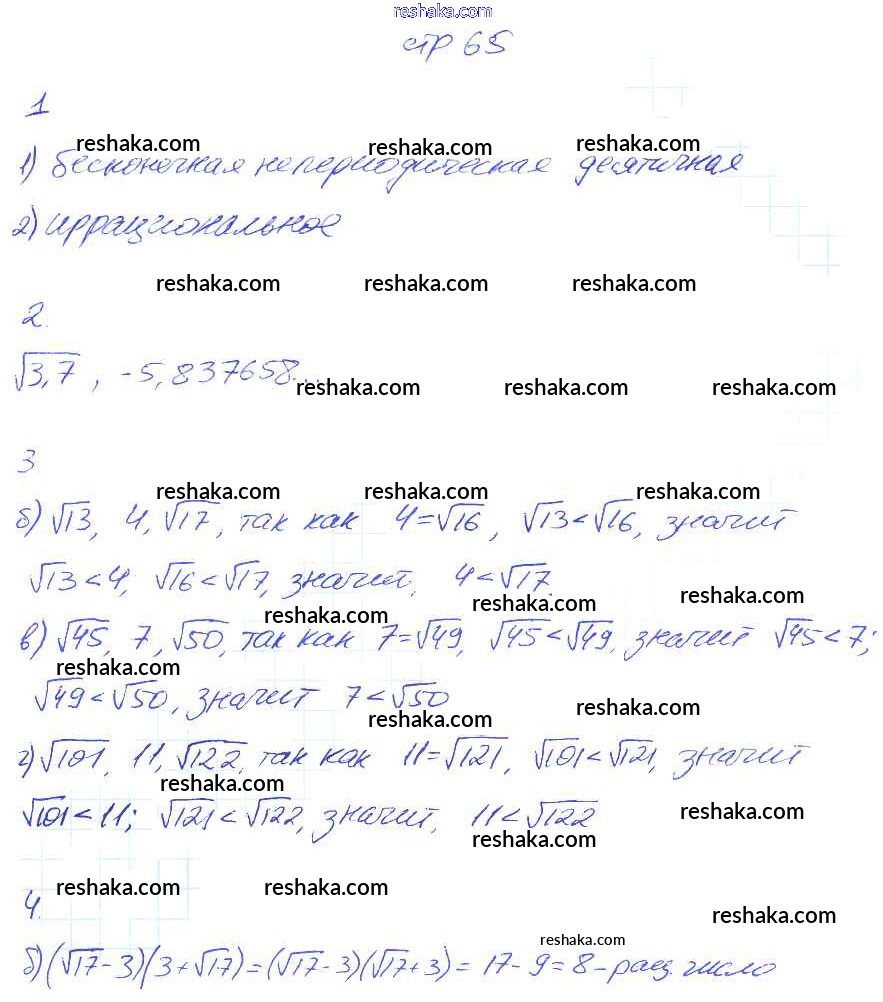 reshaka.com
стр 65
1
reshaka.com reshaka.com reshaka.com
1) бесконечная непериодическая десятичная
2) иррациональное
reshaka.com reshaka.com reshaka.com
2.
√3,7 , -5,837658...
reshaka.com reshaka.com reshaka.com
3
reshaka.com reshaka.com reshaka.com
б) √13, 4, √17, так как 4=√16, √13<√16, значит
√13<4; √16<√17, значит, 4<√17.
reshaka.com reshaka.com reshaka.com
в) √45, 7, √50, так как 7=√49, √45<√49, значит √45<7;
reshaka.com
√49<√50, значит 7<√50
reshaka.com reshaka.com
г) √101, 11, √122, так как 11=√121, √101<√121, значит
reshaka.com
√101<11; √121<√122, значит, 11<√122
reshaka.com reshaka.com
reshaka.com reshaka.com
4.
reshaka.com
reshaka.com
б) (√17-3)(3+√17)=(√17-3)(√17+3)= 17-9=8-рац. число